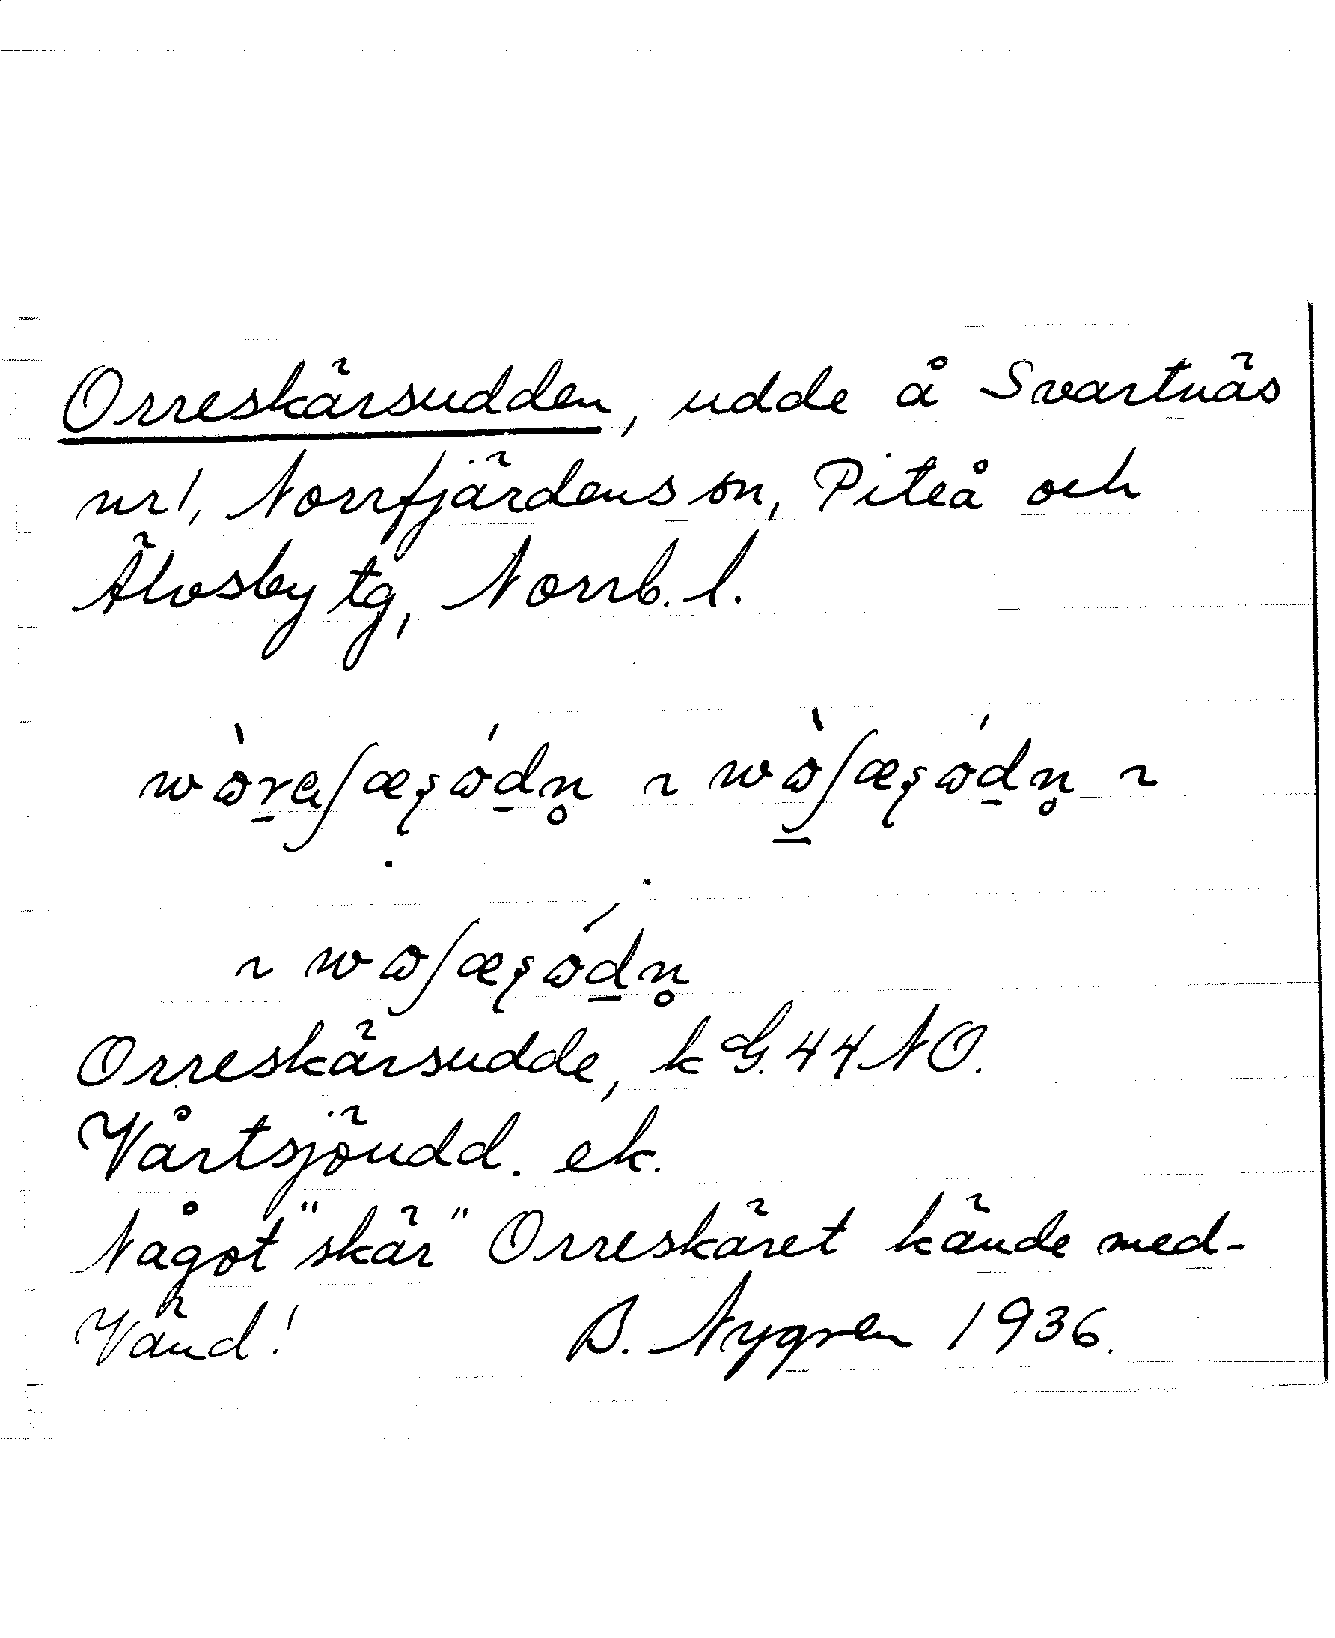 Orreskärsudden, udde å Svartnäs
nr 1, Norrfjärdens sn, Piteå och
Älvsby tg, Norrb. l.
Orreskärsudde, k G. 44 NO.
Vårtsjöudd. ek.
Något "skär" Orreskäret kände med-
Vänd! B. Nygren 1936.